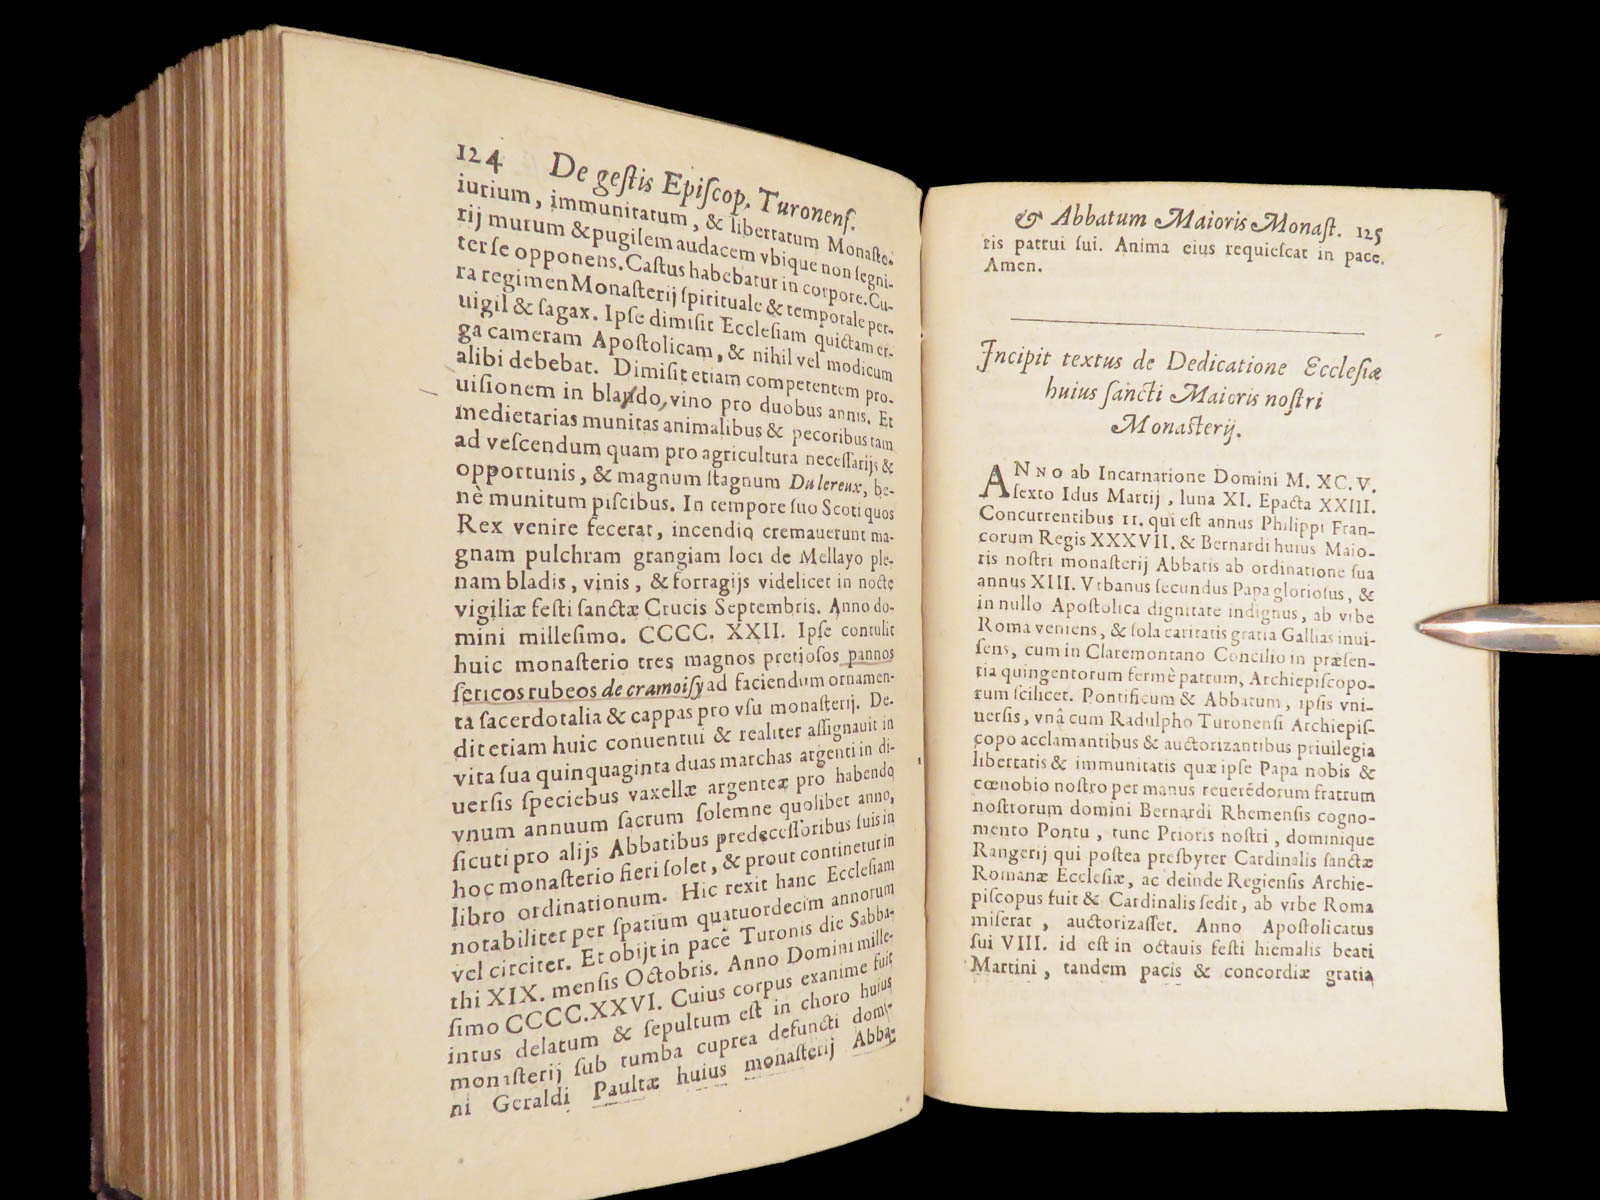 124 De geſtis Epiſcop. Turonenſ.
iurium, immunitatum, & libertatum Monaſte-
rij murum & pugilem audacem vbique non ſegni-
ter ſe opponens. Caſtus habebatur in corpore. Cu-
ra regimen Monaſterij ſpirituale & temporale per-
uigil & ſagax. Ipſe dimiſit Eccleſiam quictam er-
ga cameram Apoſtolicam, & nihil vel modicum
alibi debebat. Dimiſit etiam competentem pro-
uiſionem in blando, vino pro duobus annis. Et
medietarias munitas animalibus & pecoribus tam
ad veſcendum quam pro agricultura neceſſarijs &
opportunis, & magnum ſtagnum Du lereux, be-
nè munitum piſcibus. In tempore ſuo Scoti quos
Rex venire fecerat, incendio cremauerunt ma-
gnam pulchram grangiam loci de Mellayo ple-
nam bladis, vinis, & forragijs videlicet in nocte
vigiliæ feſti ſanctæ Crucis Septembris. Anno do-
mini milleſimo. CCCC. XXII. Ipſe contulit
huic monaſterio tres magnos pretioſos pannos
ſericos rubeos de cramoiſy ad faciendum ornamen-
ta ſacerdotalia & cappas pro vſu monaſterij. De-
dit etiam huic conuentui & realiter aſſignauit in
vita ſua quinquaginta duas marchas argenti in di-
uerſis ſpeciebus vaxellæ argenteæ pro habendo
vnum annuum ſacrum ſolemne quolibet anno,
ſicuti pro alijs Abbatibus predeceſſoribus ſuis in
hoc monaſterio fieri ſolet, & prout continetur in
libro ordinationum. Hic rexit hanc Eccleſiam
notabiliter per ſpatium quatuordecim annorum
vel circiter. Et obijt in pacē Turonis die Sabba-
thi XIX. menſis Octobris. Anno Domini mille-
ſimo CCCC.XXVI. Cuius corpus exanime fuit
intus delatum & ſepultum eſt in choro huius
monaſterij ſub tumba cuprea defuncti domi-
ni Geraldi Paultæ huius monaſterij Abba-
& Abbatum Maioris Monaſt. 125
tis patrui ſui. Anima eius requieſcat in pace.
Amen.
Incipit textus de Dedicatione Eccleſiæ
huius ſancti Maioris noſtri
Monaſterij.
ANNO ab Incarnatione Domini M. XC. V.
ſexto Idus Martij, luna XI. Epacta XXIII.
Concurrentibus 11. qui eſt annus Philippi Fran-
corum Regis XXXVII. & Bernardi huius Maio-
ris noſtri monaſterij Abbatis ab ordinatione ſua
annus XIII. Vrbanus ſecundus Papa glorioſus, &
in nullo Apoſtolica dignitate indignus, ab vrbe
Roma veniens, & ſola caritatis gratia Gallias inui-
ſens, cum in Claremontano Concilio in præſen-
tia quingentorum fermè patrum, Archiepiſcopo-
rum ſcilicet. Pontificum & Abbatum, ipſis vni-
uerſis, vnâ cum Radulpho Turonenſi Archiepiſ-
copo acclamantibus & auctorizantibus priuilegia
libertatis & immunitatis quæ ipſe Papa nobis &
cœnobio noſtro per manus reuerēdorum fratrum
noſtrorum domini Bernardi Rhemenſis cogno-
mento Pontu, tunc Prioris noſtri, dominique
Rangerij qui poſtea presbyter Cardinalis ſanctæ
Romanæ Eccleſiæ, ac deinde Regienſis Archie-
piſcopus fuit & Cardinalis ſedit, ab vrbe Roma
miſerat, auctorizaſſet. Anno Apoſtolicatus
ſui VIII. id eſt in octauis feſti hiemalis beati
Martini, tandem pacis & concordiæ gratia